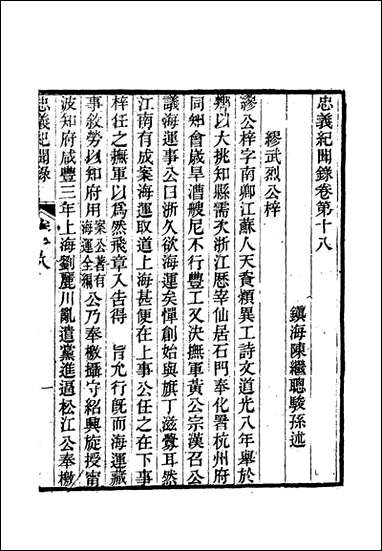 忠義紀聞錄卷第十八
鎮海陳繼聰駿孫述
繆武烈公梓
繆公梓字南卿江蘇人天資穎異工詩文道光八年舉於
鄉以大挑知縣需次浙江歷宰仙居石門奉化署杭州府
同知會歲旱漕艘尼不行豐工又決撫軍黃公宗漢召公
議海運事公曰浙久欲海運矣憚創始與旗丁滋釁耳然
江南有成案海運取道上海甚便在上事公任之在下事
梓任之撫軍以為然飛章入告得 旨允行既而海運藏
事敘勞以知府用案公著有海運全編公乃奉檄攝守紹興旋授甯
波知府咸豐三年上海劉麗川亂遣黨進逼松江公奉檄
忠義紀聞錄
一